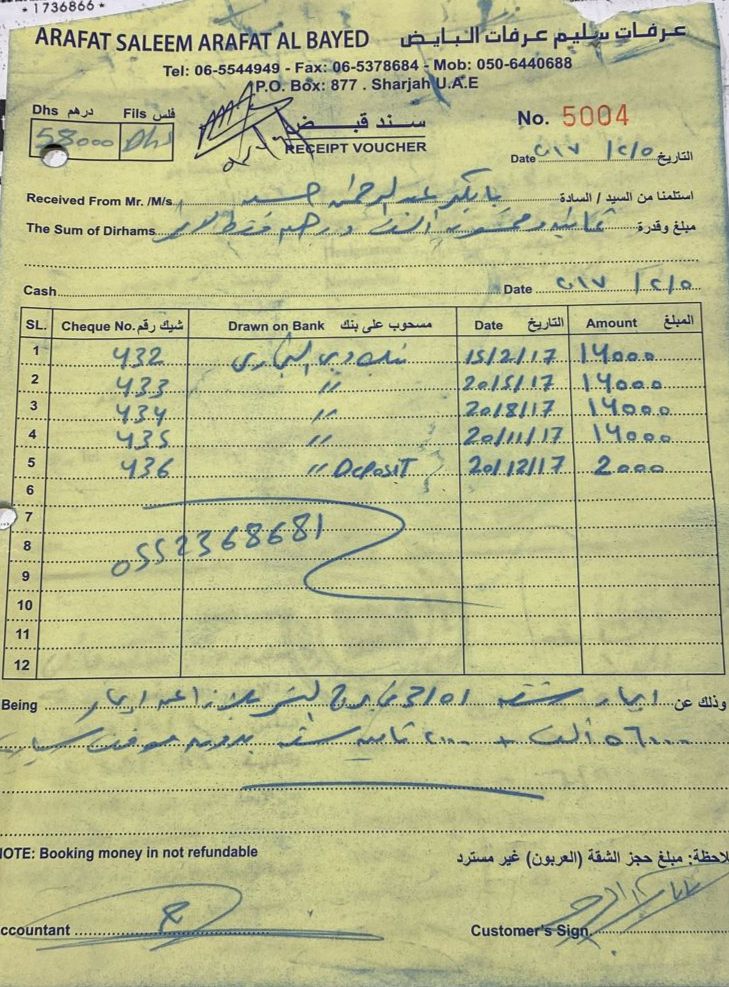 * 1736866 *
ARAFAT SALEEM ARAFAT AL BAYED عرفات سليم عرفات البايض
Tel: 06-5544949 - Fax: 06-5378684 - Mob: 050-6440688
P.O. Box: 877 . Sharjah U.A.E
Dhs درهم Fils فلس
58000 Dhs
سند قبض
RECEIPT VOUCHER
No. 5004
Date ٢٠١٧/٢/٥ التاريخ
Received From Mr. /M/s بابكر عبدالرحمن استلمنا من السيد / السادة
The Sum of Dirhams ثمانية وخمسون الف درهم فقط لا غير مبلغ وقدرة
Cash Date ٢٠١٧/٢/٥
SL. Cheque No. شيك رقم Drawn on Bank مسحوب على بنك Date التاريخ Amount المبلغ
1 432 بنك دبي التجاري 15/2/17 14000
2 433 " 20/5/17 14000
3 434 " 20/8/17 14000
4 435 " 20/11/17 14000
5 436 " Deposit 20/12/17 2000
6
7
8 0552368681
9
10
11
12
Being ايجار شقة وذلك عن
٥٦٠٠٠ الف + ٢٠٠٠ تامين شقة بدون موقف سيارة
NOTE: Booking money in not refundable لاحظة: مبلغ حجز الشقة (العربون) غير مسترد
ccountant Customer's Sign.